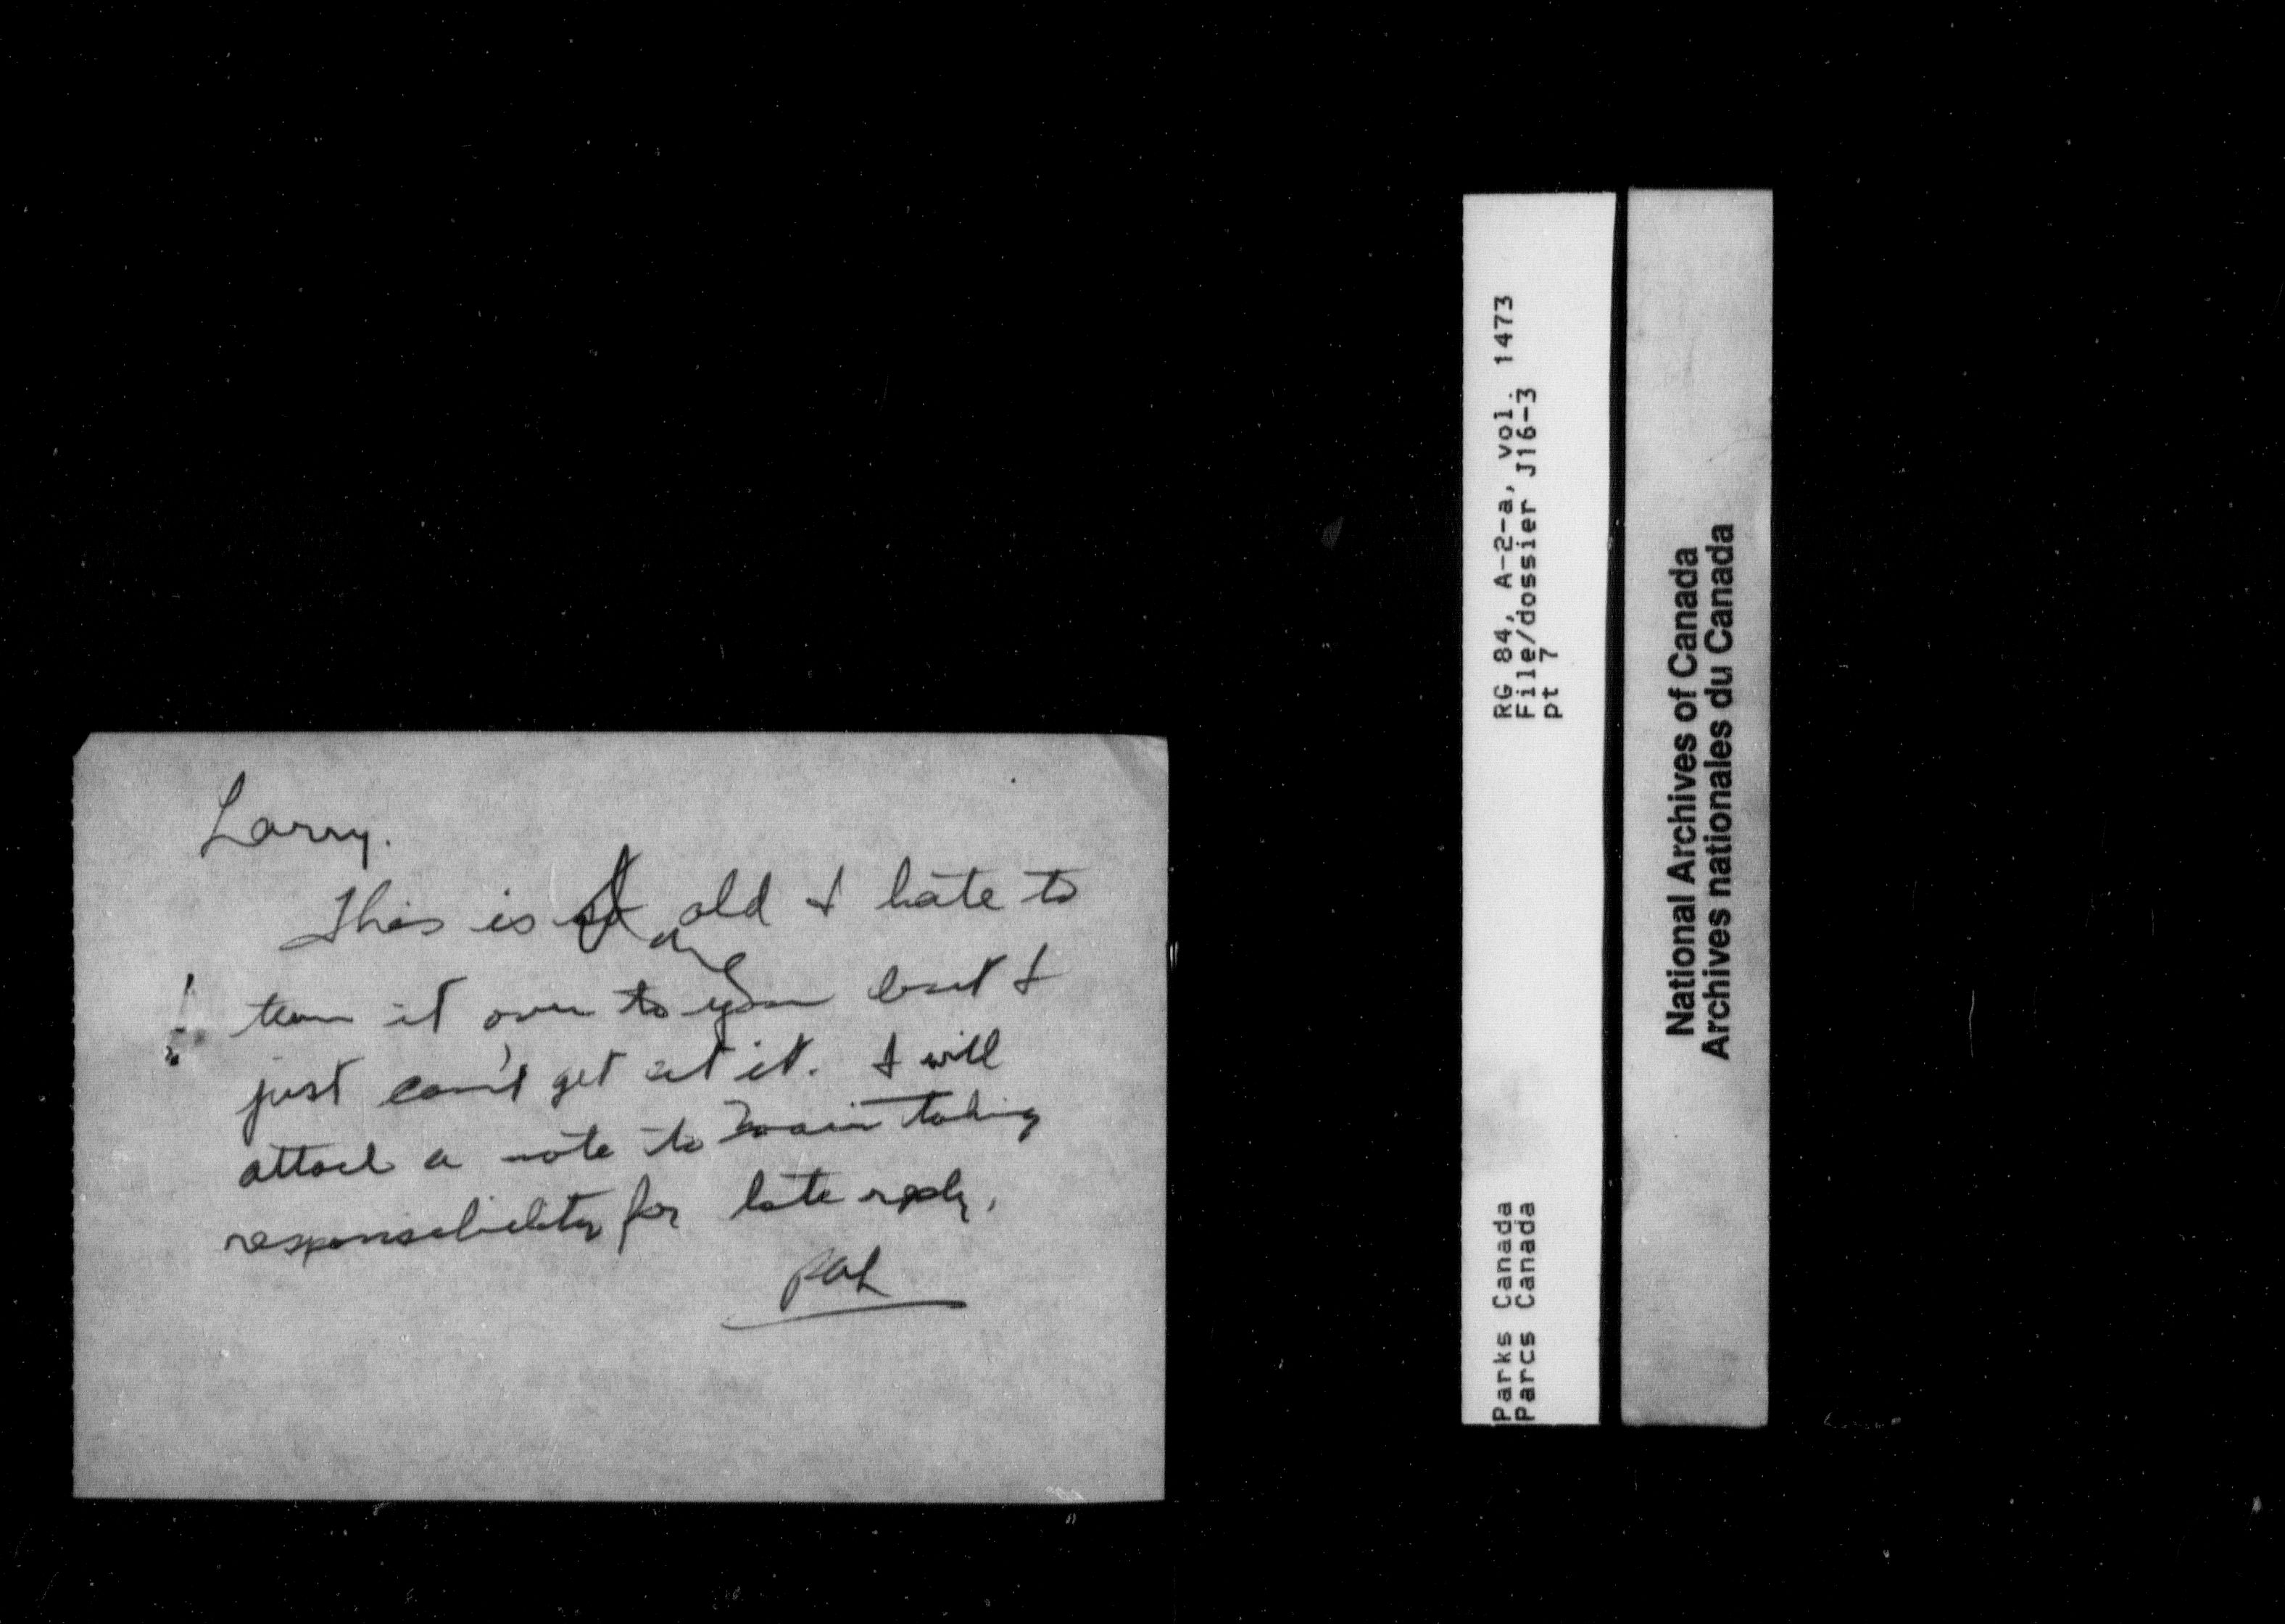 Larry.
This is old & I hate to
turn it over to you but I
just can't get at it. I will
attach a note to taking
responsibility for late reply.
RG 84, A-2-a, vol. 1473
File/dossier J16-3
pt 7
Parks Canada
Parcs Canada
National Archives of Canada
Archives nationales du Canada